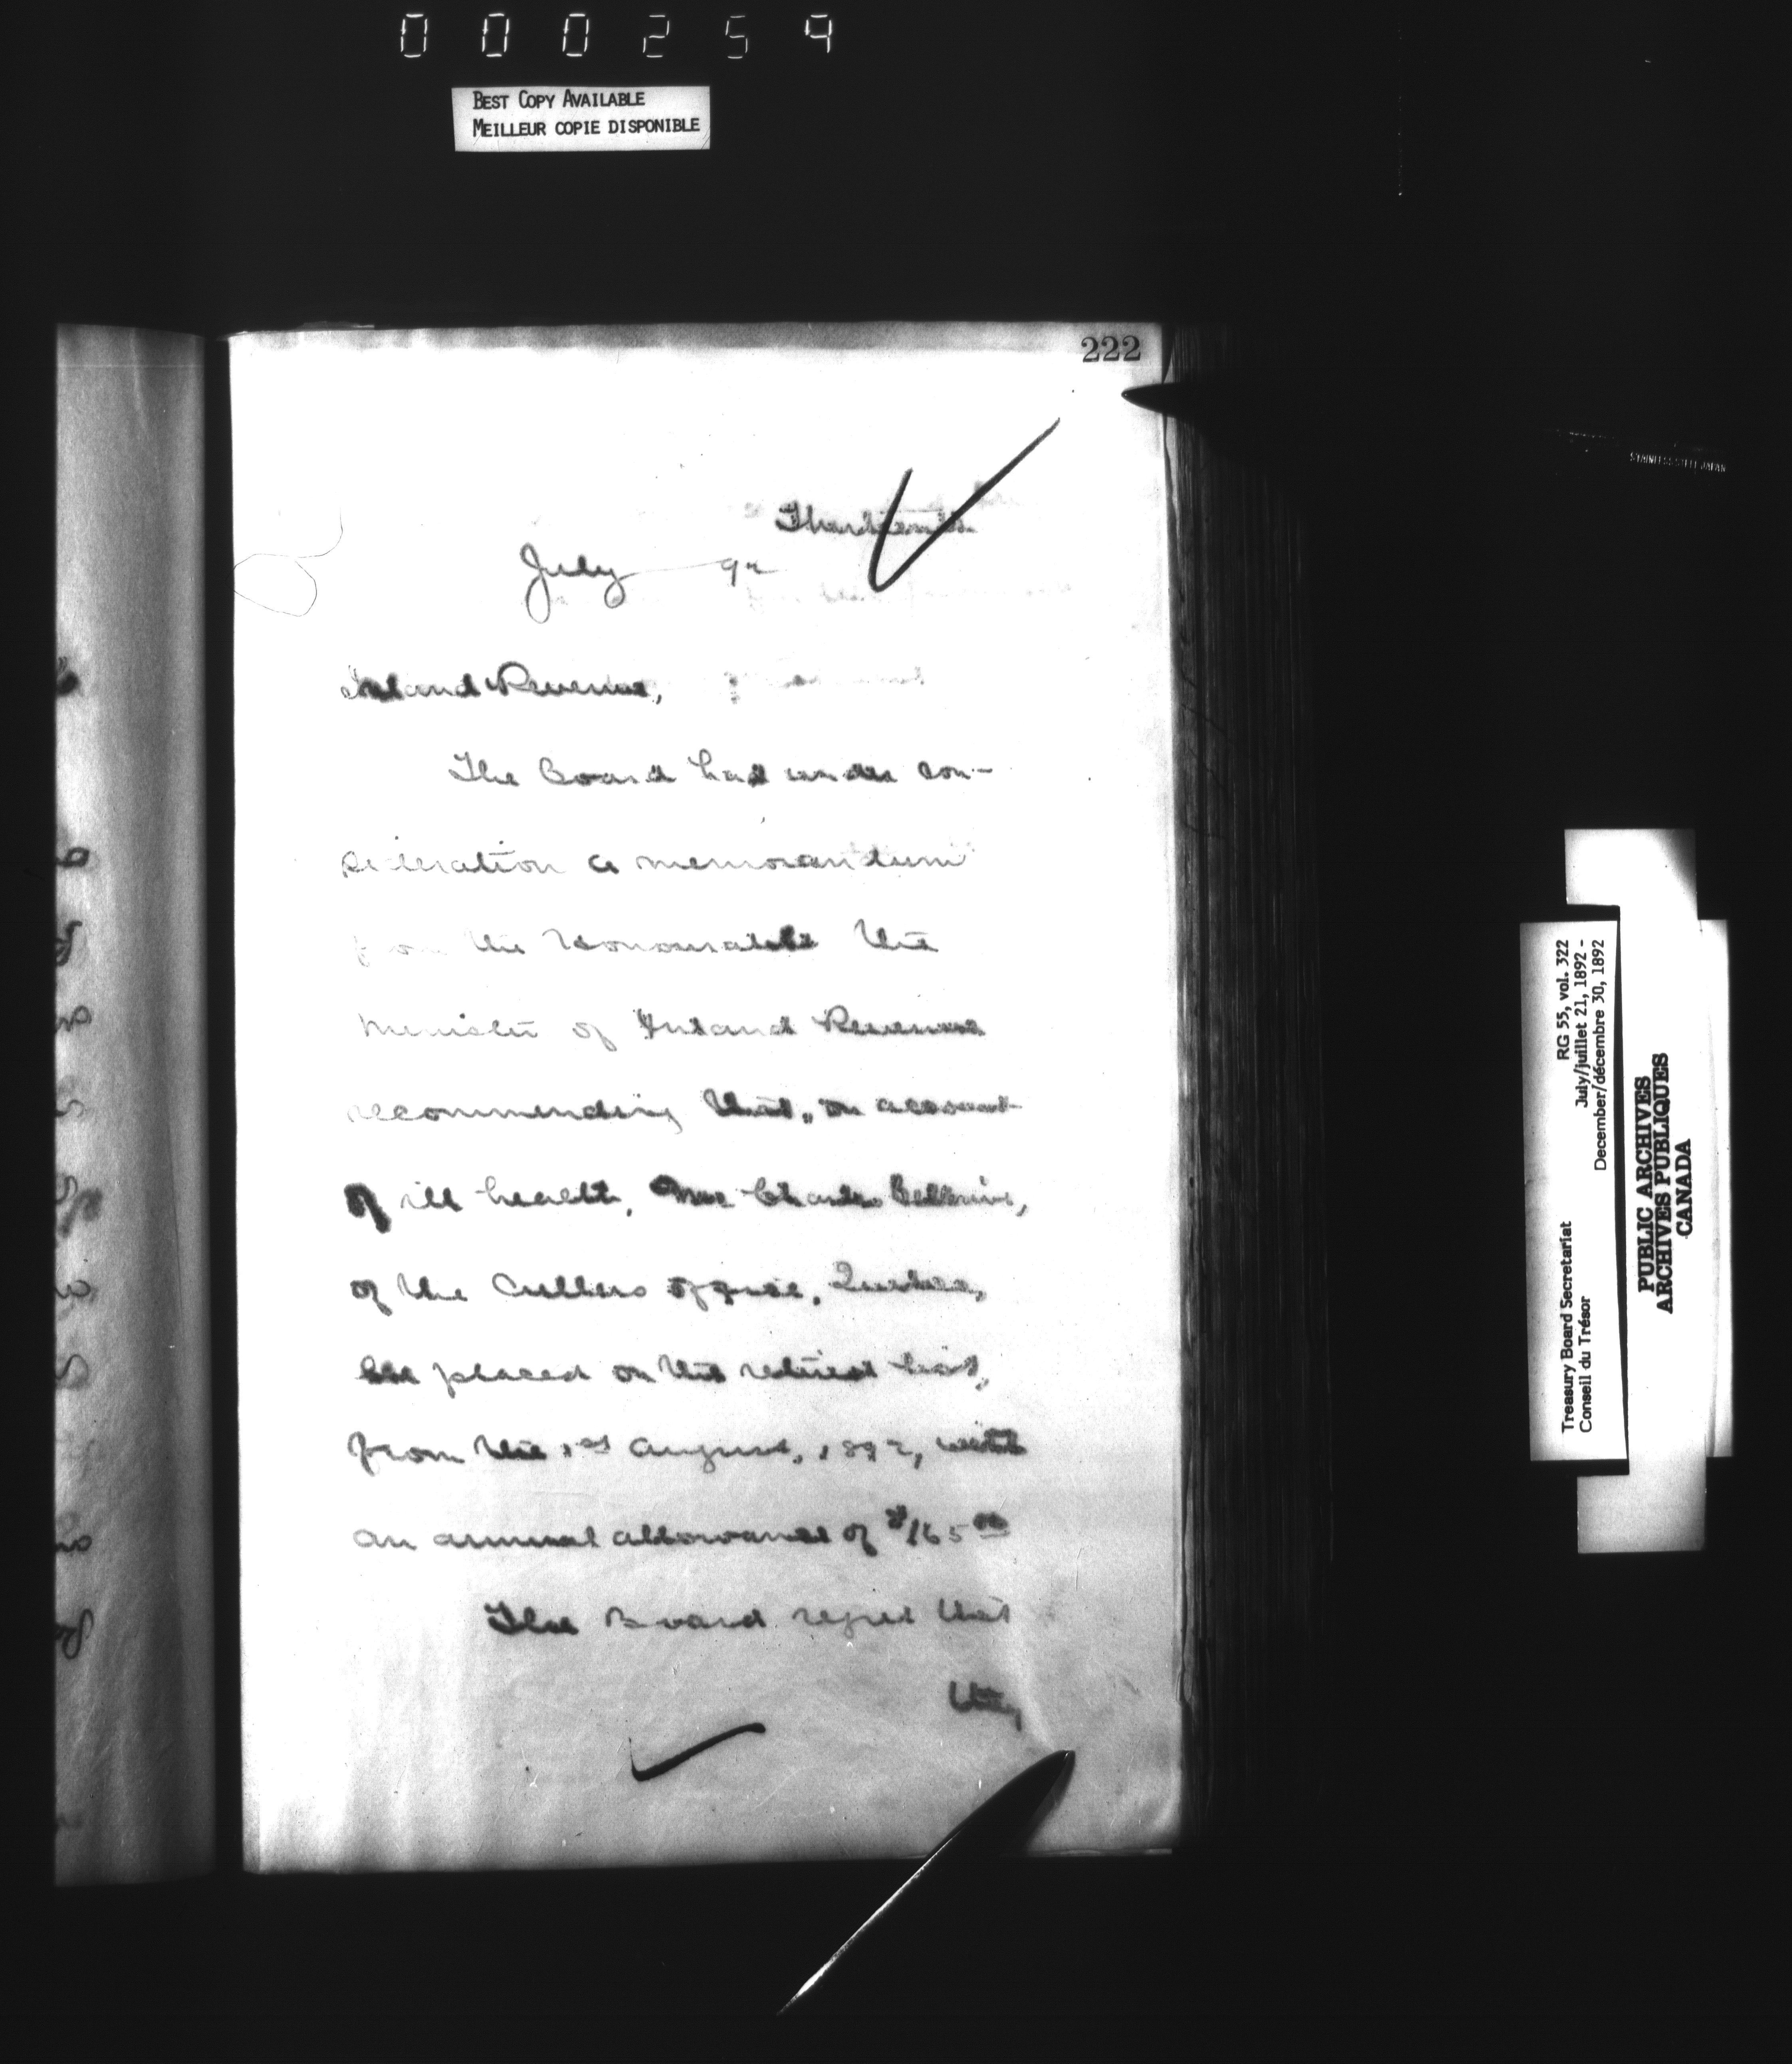 000259
BEST COPY AVAILABLE
MEILLEUR COPIE DISPONIBLE
222
July 92
Inland Revenue,
The Board had under con-
sideration a memorandum
from the Honourable the
Minister of Inland Revenue
recommending that, on account
of ill health, Mr Charles
of the Cullers office, Quebec,
be placed on the retired list,
from the 1st August, 1892, with
an annual allowance of $165 00
The Board regret that
they
STAINLESS STEEL JAPAN
Treasury Board Secretariat RG 55, vol. 322
Conseil du Trésor July/juillet 21, 1892 -
December/décembre 30, 1892
PUBLIC ARCHIVES
ARCHIVES PUBLIQUES
CANADA